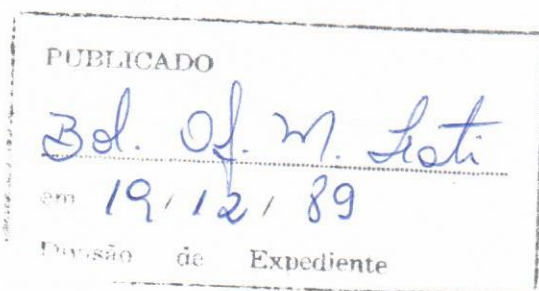 PUBLICADO
Bol. Of. M. Irati
em 19/12/89
Divisão de Expediente